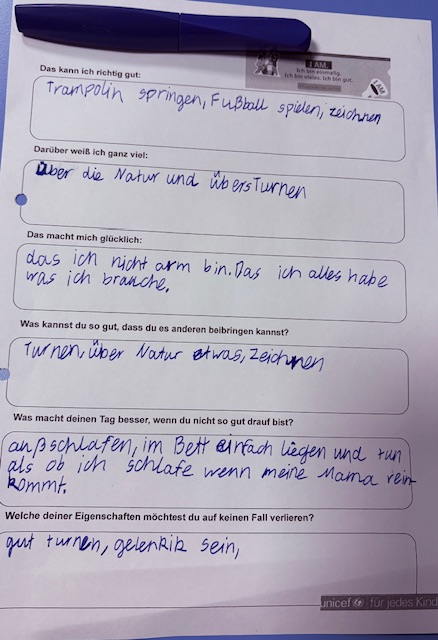 I AM.
Ich bin einmalig.
Ich bin vieles. Ich bin gut.
I AM.
Das kann ich richtig gut:
Trampolin springen, Fußball spielen, zeichnen
Darüber weiß ich ganz viel:
über die Natur und übers Turnen
Das macht mich glücklich:
das ich nicht arm bin. Das ich alles habe
was ich brauche.
Was kannst du so gut, dass du es anderen beibringen kannst?
Turnen, über Natur etwas, Zeichnen
Was macht deinen Tag besser, wenn du nicht so gut drauf bist?
außschlafen, im Bett einfach liegen und tun
als ob ich schlafe wenn meine Mama rein
kommt.
Welche deiner Eigenschaften möchtest du auf keinen Fall verlieren?
gut turnen, gelenkik sein,
unicef für jedes Kind